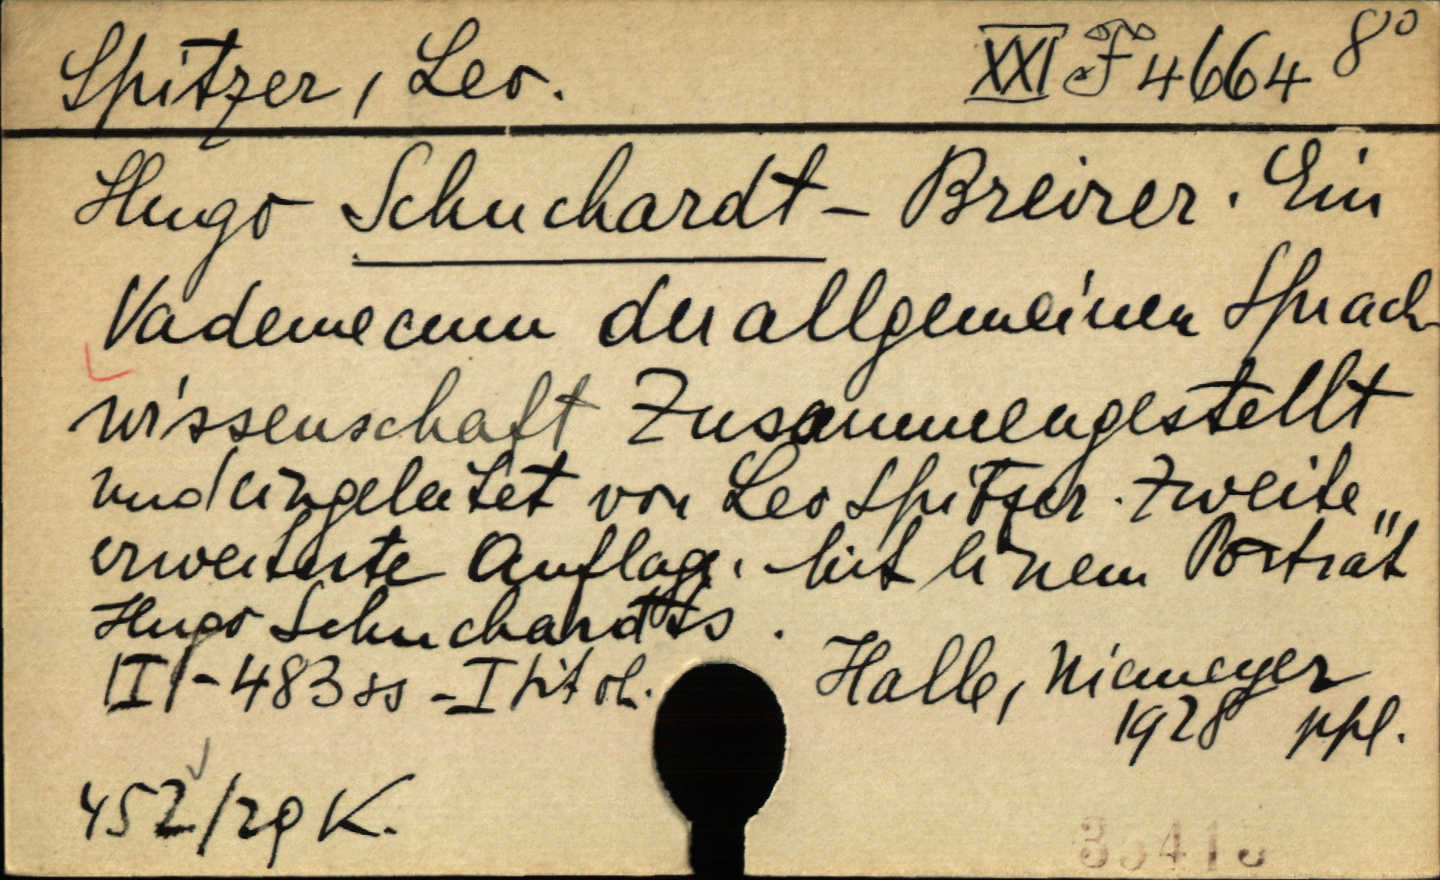 Spitzer, Leo. XXI F 4664 8º
Hugo Schuchardt - Brevier. Ein
Vademecum der allgemeinen Sprach-
wissenschaft Zusammengestellt
und eingeleitet von Leo Spitzer. Zweite
erweiterte Auflage. Mit einem Porträt
Hugo Schuchardts.
|I| - 483 ss - I Halle, Niemeyer
1928 ppl.
452/29 K.
35415